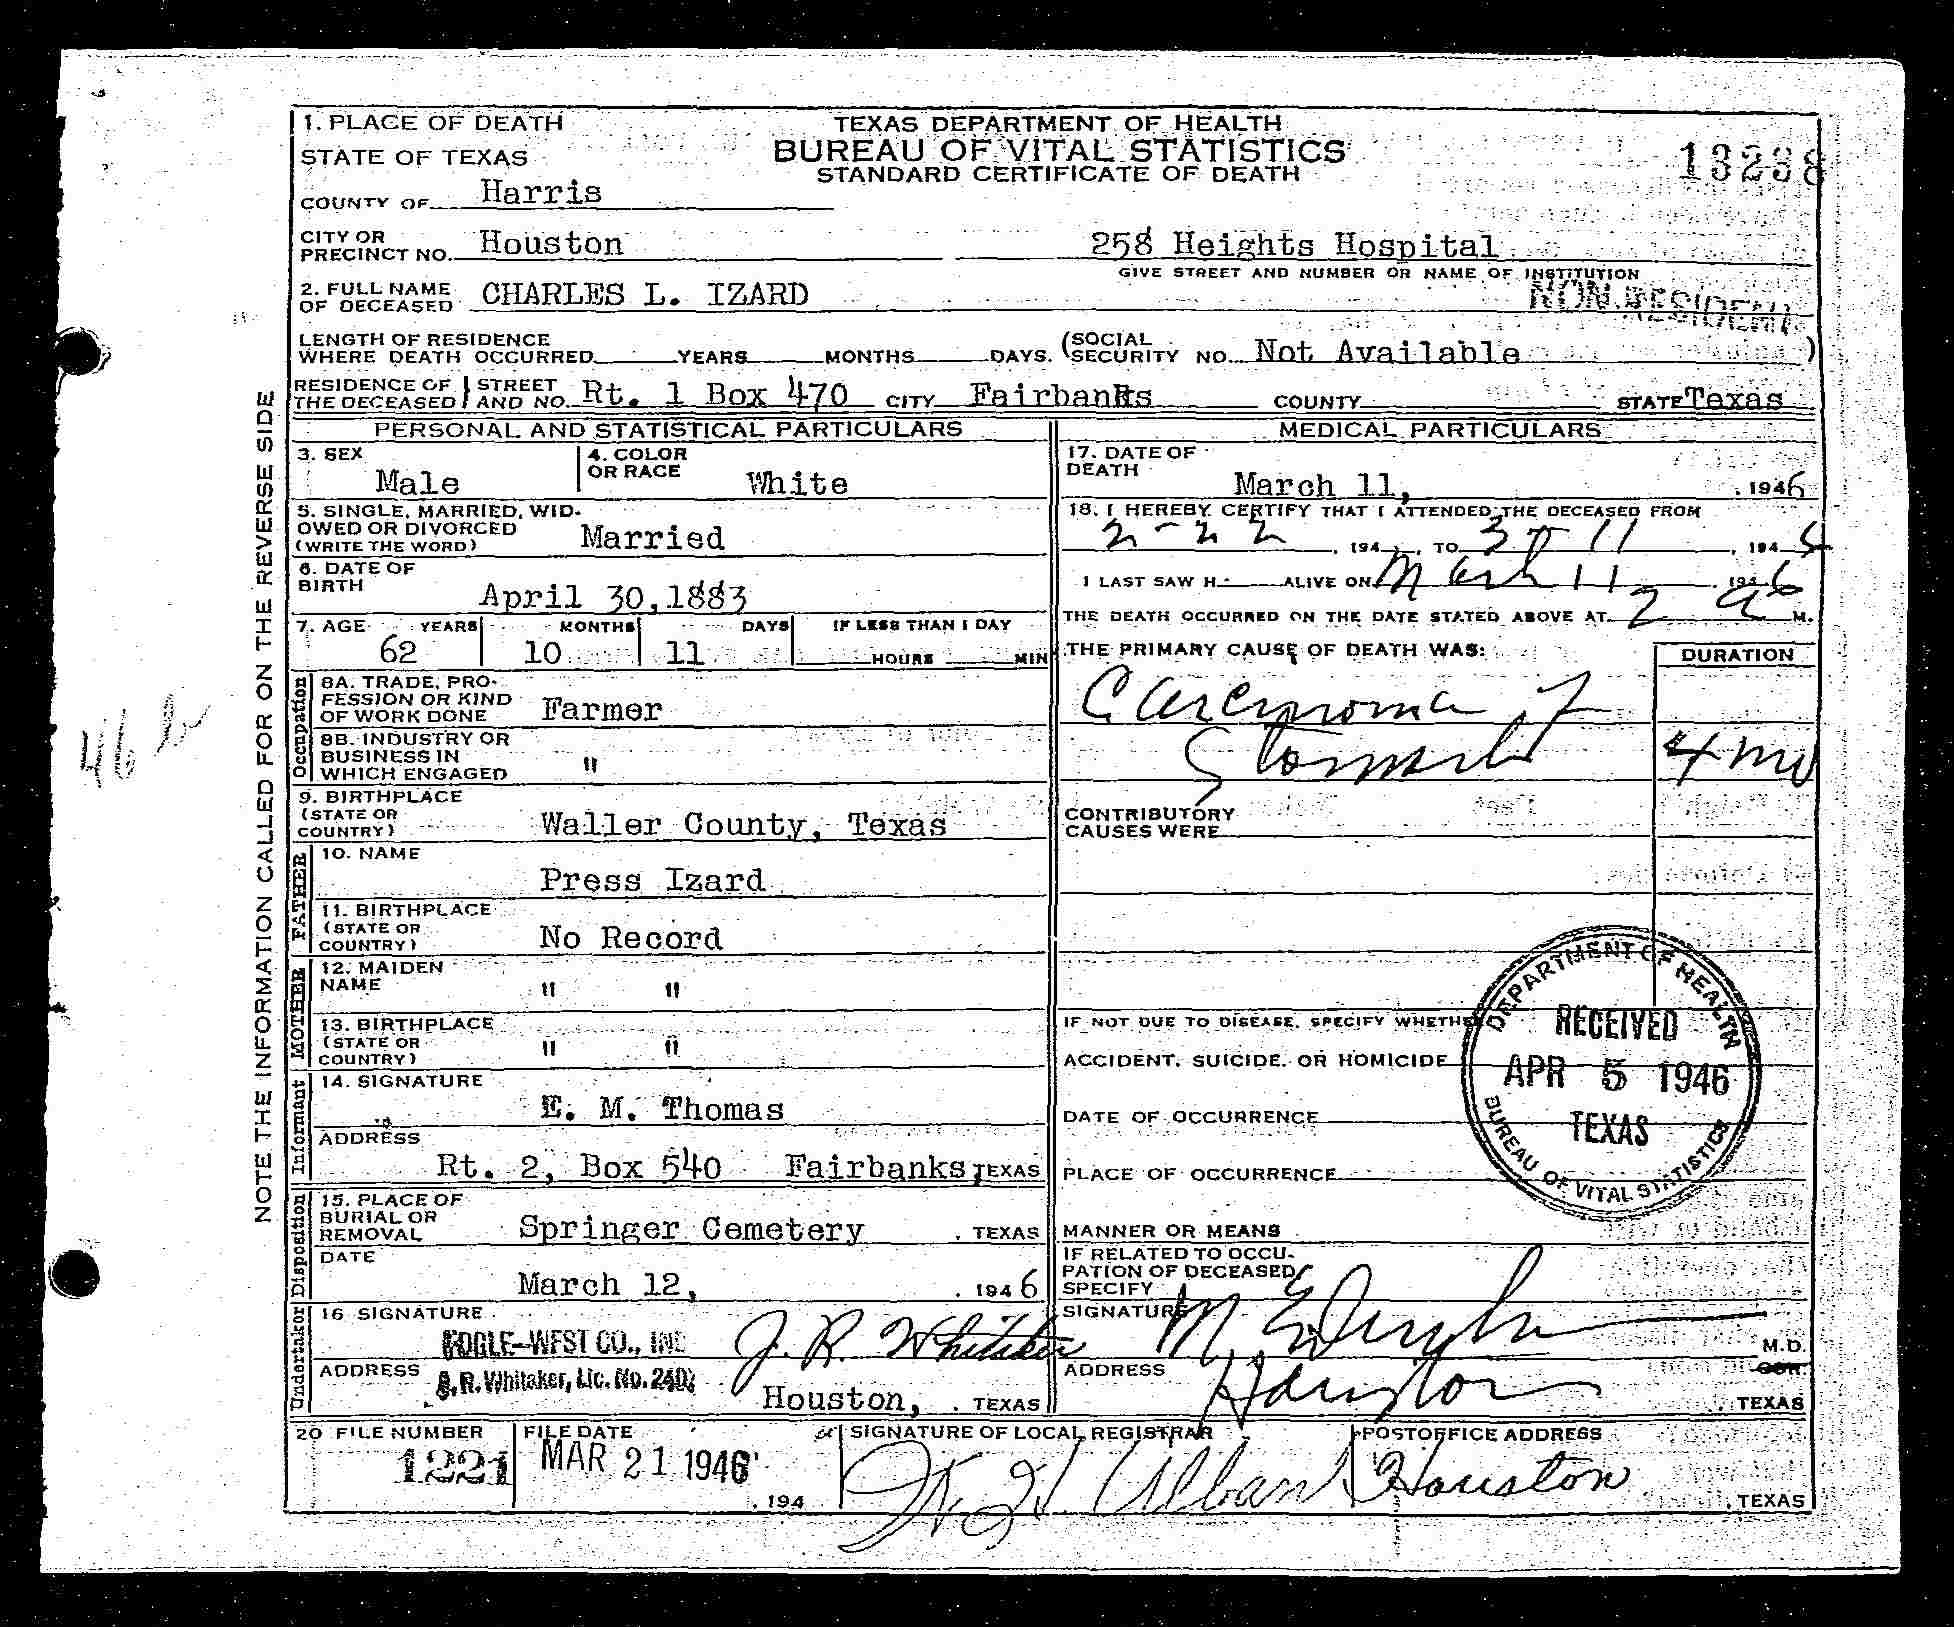 1. PLACE OF DEATH
STATE OF TEXAS
COUNTY OF Harris
TEXAS DEPARTMENT OF HEALTH
BUREAU OF VITAL STATISTICS
STANDARD CERTIFICATE OF DEATH
13238
CITY OR
PRECINCT NO. Houston 258 Heights Hospital
GIVE STREET AND NUMBER OR NAME OF INSTITUTION
2. FULL NAME
OF DECEASED CHARLES L. IZARD
NON-RESIDENT
LENGTH OF RESIDENCE
WHERE DEATH OCCURRED YEARS MONTHS DAYS. (SOCIAL
SECURITY NO. Not Available )
RESIDENCE OF THE DECEASED STREET AND NO. Rt. 1 Box 470 CITY Fairbanks COUNTY STATE Texas
PERSONAL AND STATISTICAL PARTICULARS
3. SEX Male
4. COLOR OR RACE White
5. SINGLE, MARRIED, WID-
OWED OR DIVORCED
(WRITE THE WORD) Married
6. DATE OF
BIRTH April 30, 1883
7. AGE YEARS MONTHS DAYS IF LESS THAN 1 DAY
62 10 11 HOURS MIN
Occupation
8A. TRADE, PRO-
FESSION OR KIND
OF WORK DONE Farmer
8B. INDUSTRY OR
BUSINESS IN
WHICH ENGAGED "
9. BIRTHPLACE
(STATE OR
COUNTRY) Waller County, Texas
FATHER
10. NAME
Press Izard
11. BIRTHPLACE
(STATE OR
COUNTRY) No Record
MOTHER
12. MAIDEN
NAME " "
13. BIRTHPLACE
(STATE OR
COUNTRY) " "
Informant
14. SIGNATURE
E. M. Thomas
ADDRESS
Rt. 2, Box 540 Fairbanks, TEXAS
Disposition
15. PLACE OF
BURIAL OR
REMOVAL Springer Cemetery , TEXAS
DATE
March 12, , 1946
Undertaker
16 SIGNATURE
FOGLE-WEST CO., INC J. R. Whitaker
ADDRESS J. R. Whitaker, Lic. No. 2402
Houston, , TEXAS
MEDICAL PARTICULARS
17. DATE OF
DEATH March 11, , 1946
18. I HEREBY CERTIFY THAT I ATTENDED THE DECEASED FROM
2-22 , 194 , TO 3-11 , 1946
I LAST SAW H ALIVE ON March 11 , 1946
THE DEATH OCCURRED ON THE DATE STATED ABOVE AT 2 a M.
THE PRIMARY CAUSE OF DEATH WAS: DURATION
Carcinoma of
Stomach 4 mo
CONTRIBUTORY
CAUSES WERE
IF NOT DUE TO DISEASE, SPECIFY WHETHER
ACCIDENT, SUICIDE, OR HOMICIDE
DATE OF OCCURRENCE
PLACE OF OCCURRENCE
MANNER OR MEANS
IF RELATED TO OCCU-
PATION OF DECEASED,
SPECIFY
SIGNATURE M.D.
ADDRESS Houston , TEXAS
DEPARTMENT OF HEALTH
RECEIVED
APR 5 1946
TEXAS
BUREAU OF VITAL STATISTICS
20 FILE NUMBER
1221
FILE DATE
MAR 21 1946
, 194
SIGNATURE OF LOCAL REGISTRAR
POSTOFFICE ADDRESS
Houston , TEXAS
NOTE THE INFORMATION CALLED FOR ON THE REVERSE SIDE
46 b